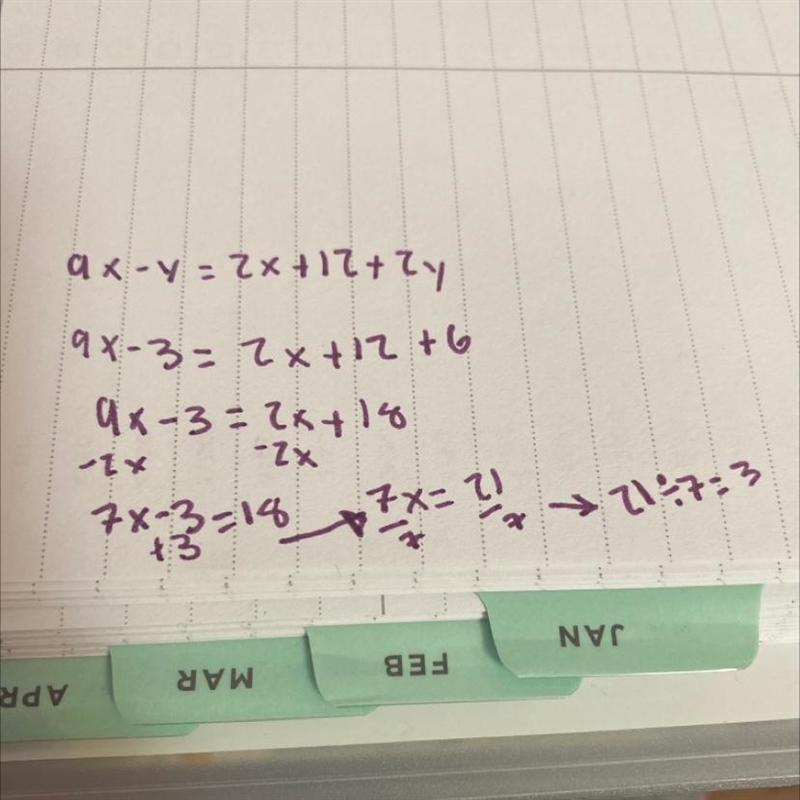 9x-y=2x+12+2y
9x-3=2x+12+6
9x-3=2x+18
-2x -2x
7x-3=18 → 7x=21 → 21÷7=3
+3 -x -x
JAN
FEB
MAR
APR